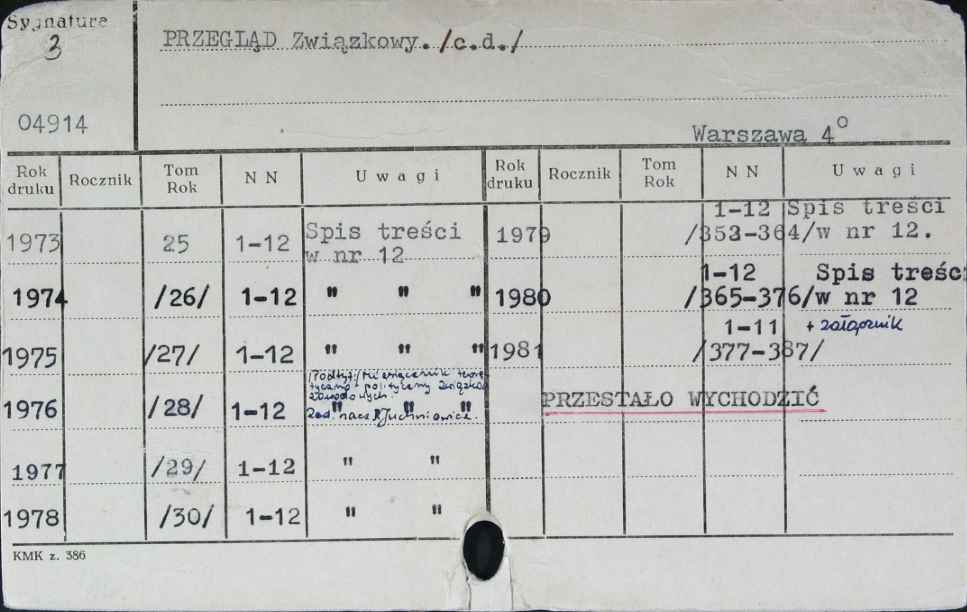 Sygnatura
3
PRZEGLĄD Związkowy./c.d./
04914
Warszawa 4°
Rok druku Rocznik Tom Rok N N Uwagi Rok druku Rocznik Tom Rok N N Uwagi
1973 25 1-12 Spis treści w nr 12
1974 /26/ 1-12 " " "
1975 /27/ 1-12 " " "
/Podtyt./Miesięcznik teore-
tyczno-polityczny związków
zawodowych.
1976 /28/ 1-12 " " "
Red. nacz. Juchniewicz.
1977 /29/ 1-12 " "
1978 /30/ 1-12 " "
1979 1-12 Spis treści
/353-364/w nr 12.
1980 1-12 Spis treśc
/365-376/w nr 12
1981 1-11 + załącznik
/377-387/
PRZESTAŁO WYCHODZIĆ
KMK z. 386